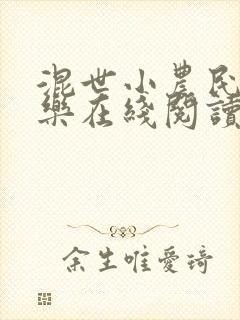 混世小農民
樂在綫閱讀
余生唯愛琦